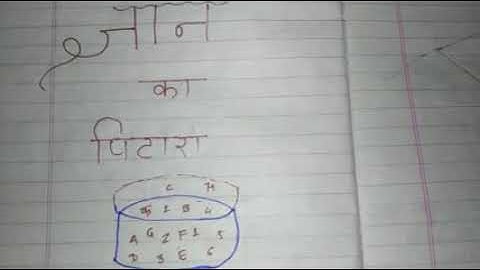 ज्ञान
का
पिटारा
C H
1 B 4
A G 2 F 1 5
D 3 E 6